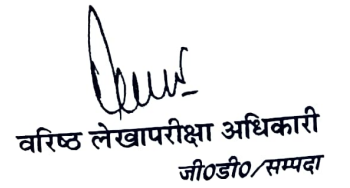 वरिष्ठ लेखापरीक्षा अधिकारी
जी०डी०/सम्पदा